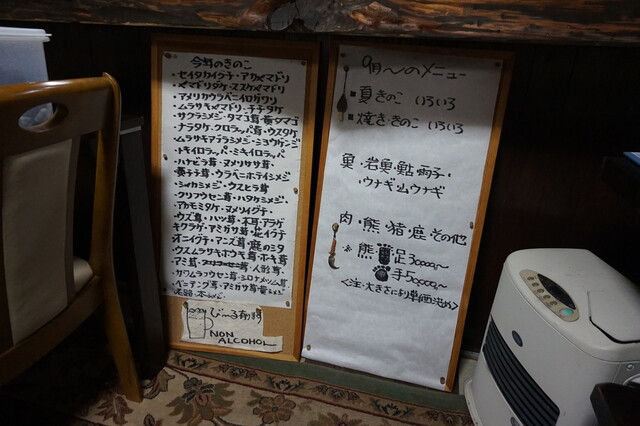 今年のきのこ
・セイタカイグチ・アカヤマドリ
・ヤマドリタケ・ススケヤマドリ
・アメリカウラベニイロガワリ
・ムラサキヤマドリ・チチタケ
・サクラシメジ・タマゴ茸
・ナラタケ・クロラッパ茸・ウスタケ
・ムラサキアブラシメジ・ショウゲンジ
・トキイロラッパ・ミキイロラッパ
・ハナビラ茸・ヌメリササ茸
・ウラベニホテイシメジ
・シャカシメジ・ウスヒラ茸
・クリフウセン茸・ハタケシメジ
・アカモミタケ・ヌメリイグチ
・ウズ茸・ハツ茸・木耳・アラゲ
キクラゲ・アミガサ茸
オニイグチ・アンズ茸・鹿の舌
ウスムラサキホウキ茸・ホキ茸
・アミ茸
・カワムラフウセン茸・シロナメツム茸
・ベニテング茸・アミガサ茸
びーる有ります
NON
ALCOHOL
9月〜のメニュー
■夏きのこ いろいろ
■焼ききのこ いろいろ
魚・岩魚・鮎・両子・
・ウナギ・山ウナギ
肉・熊・猪・鹿・その他
※熊 足30000〜
手50000〜
<注・大きさにより単価決め>